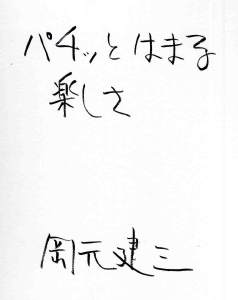 パチッとはまる
楽しさ
岡元建三